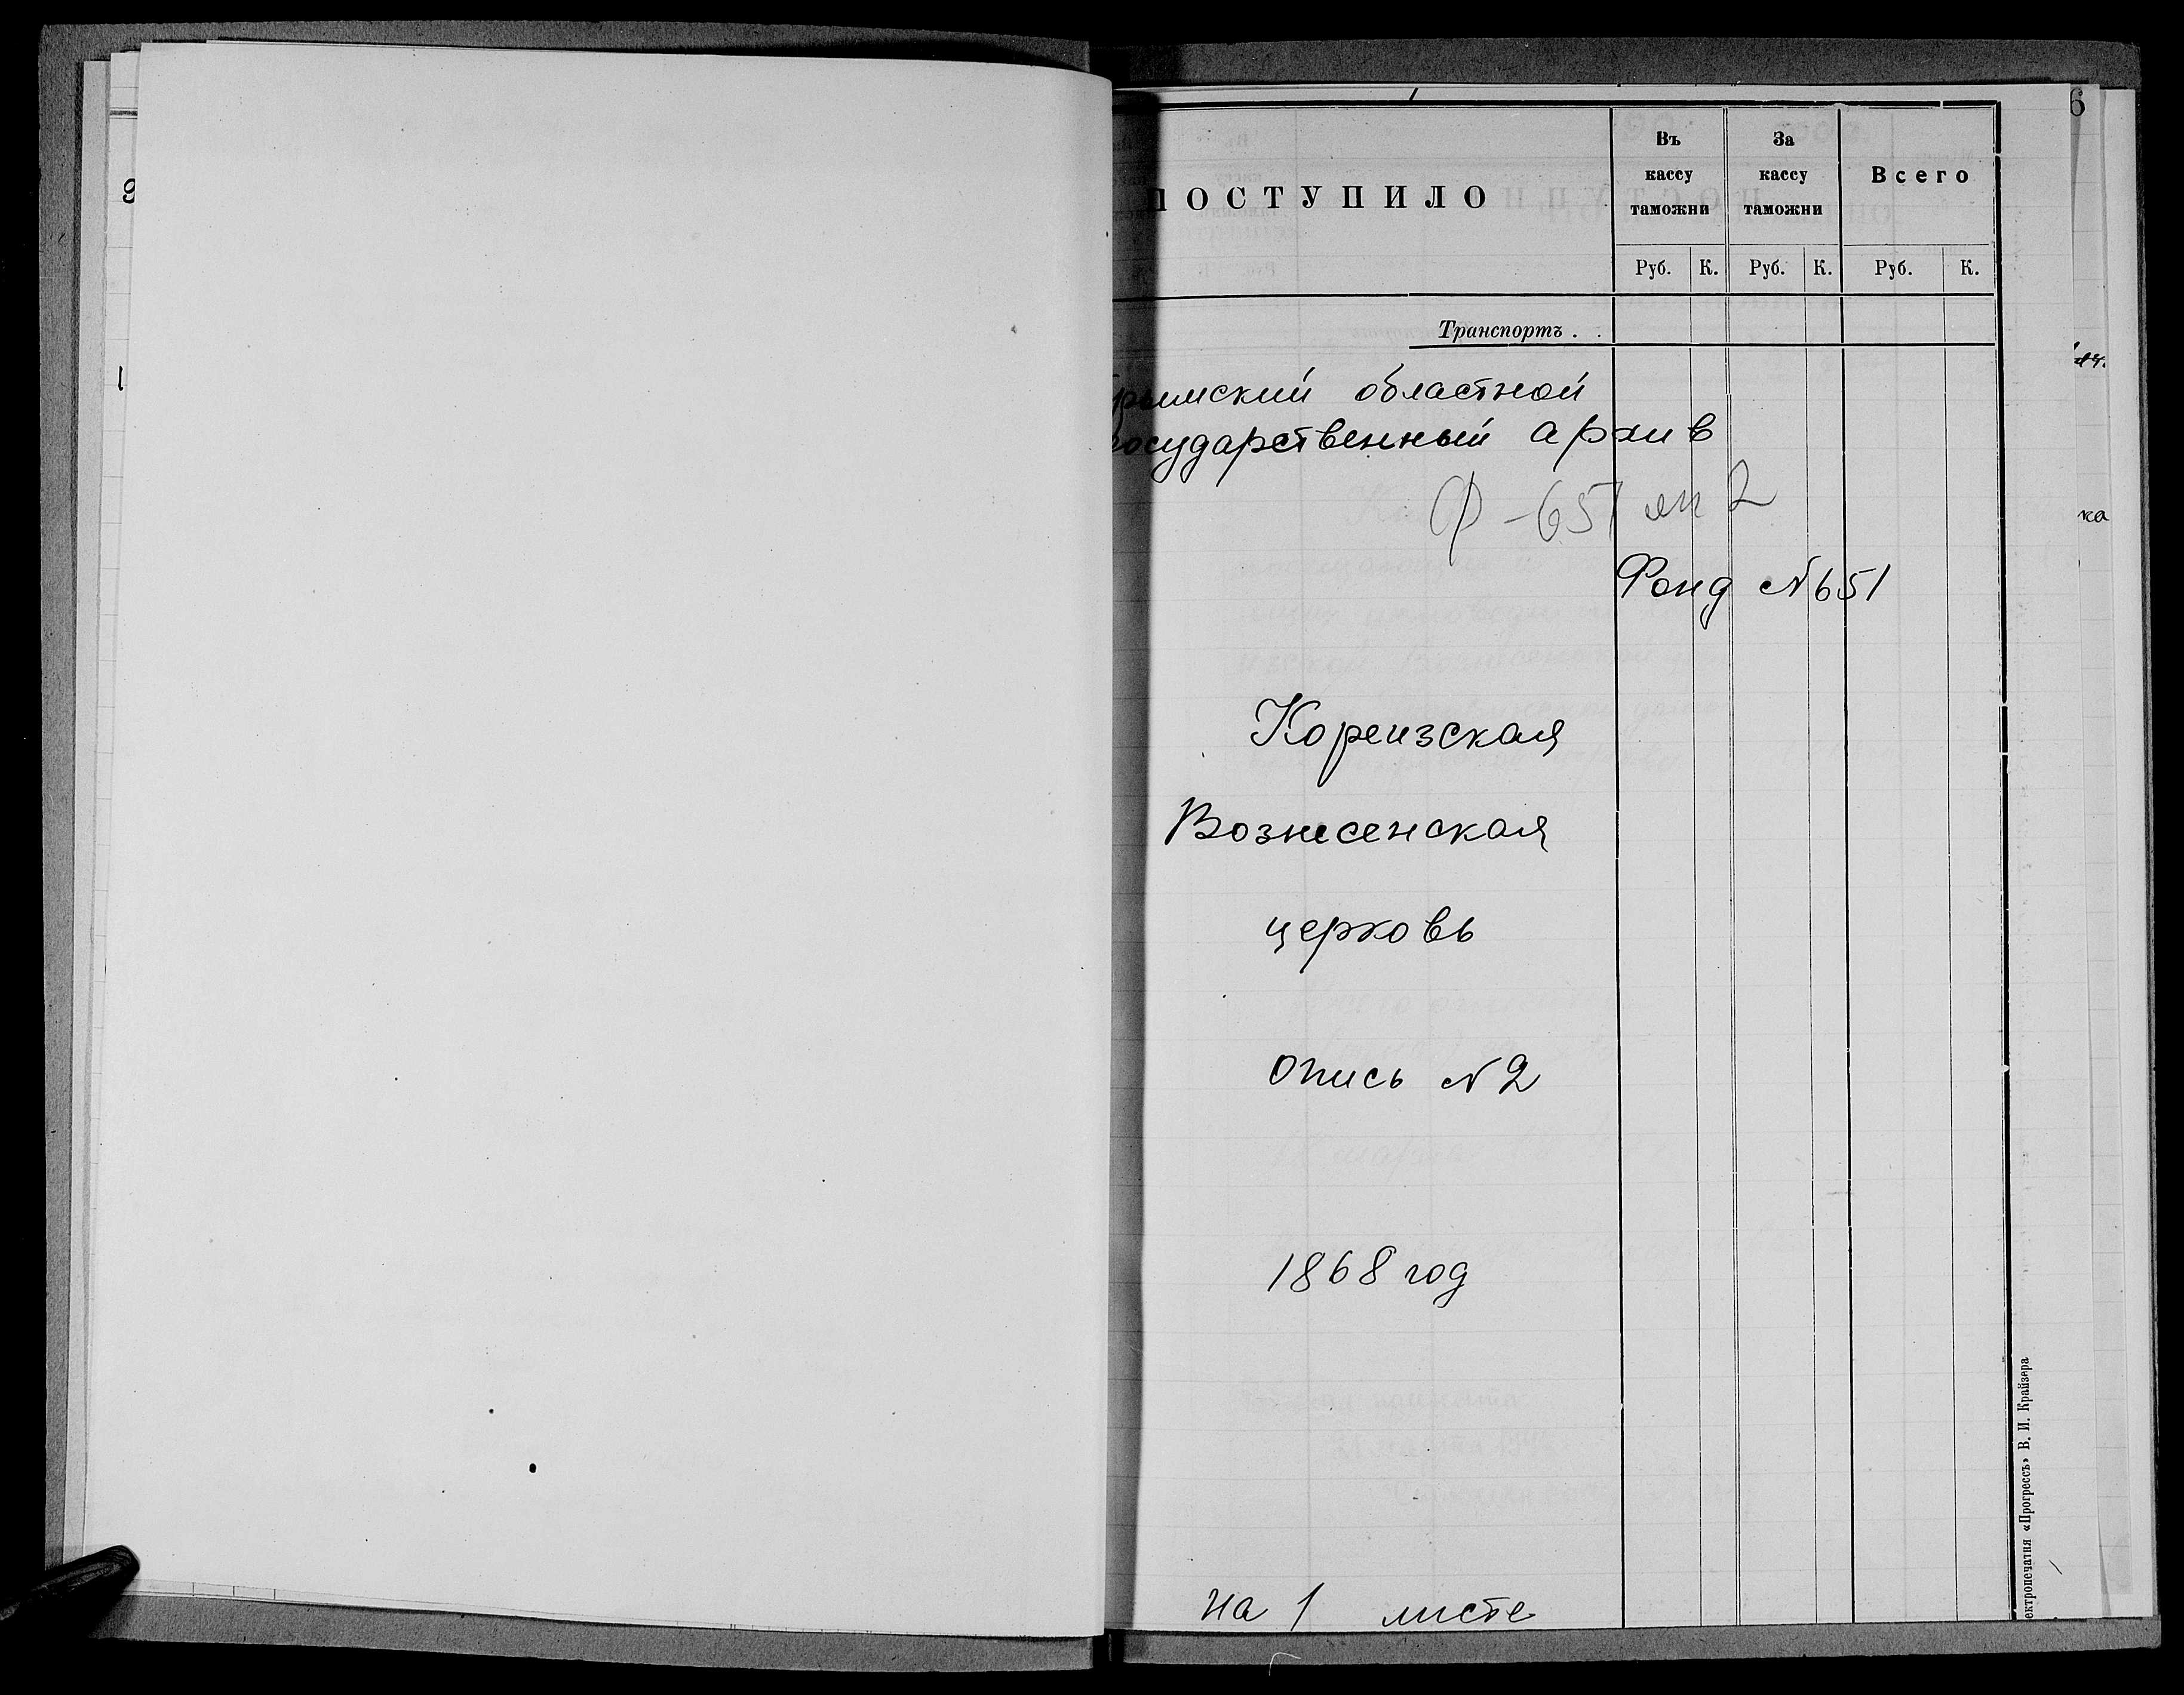 6
ПОСТУПИЛО
Въ кассу таможни
За кассу таможни
Всего
Руб. К. Руб. К. Руб. К.
Транспортъ . .
рымский областной
государственный архив
Ф-651 оп 2
Фонд №651
Кореизская
Вознесенская
церковь
опись №2
1868 год
на 1 листе
ектропечатня «Прогрессъ» В. И. Крайзера
ка